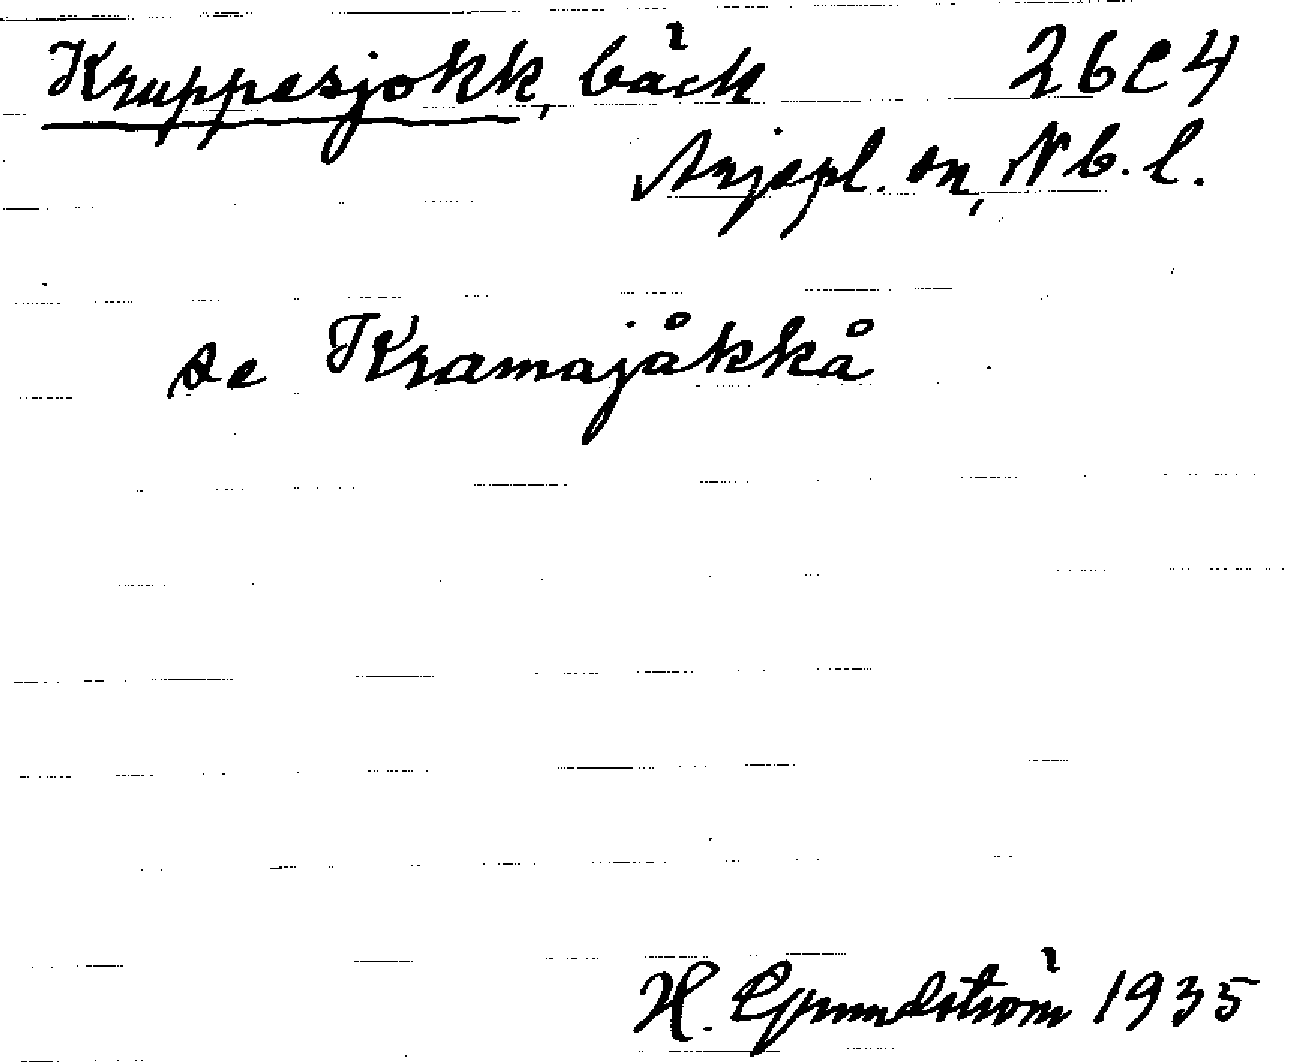 Kruppesjokk, bäck 26C4
Arjepl. sn, Nb. l.
se Kramajåkkå
H. Grundström 1935